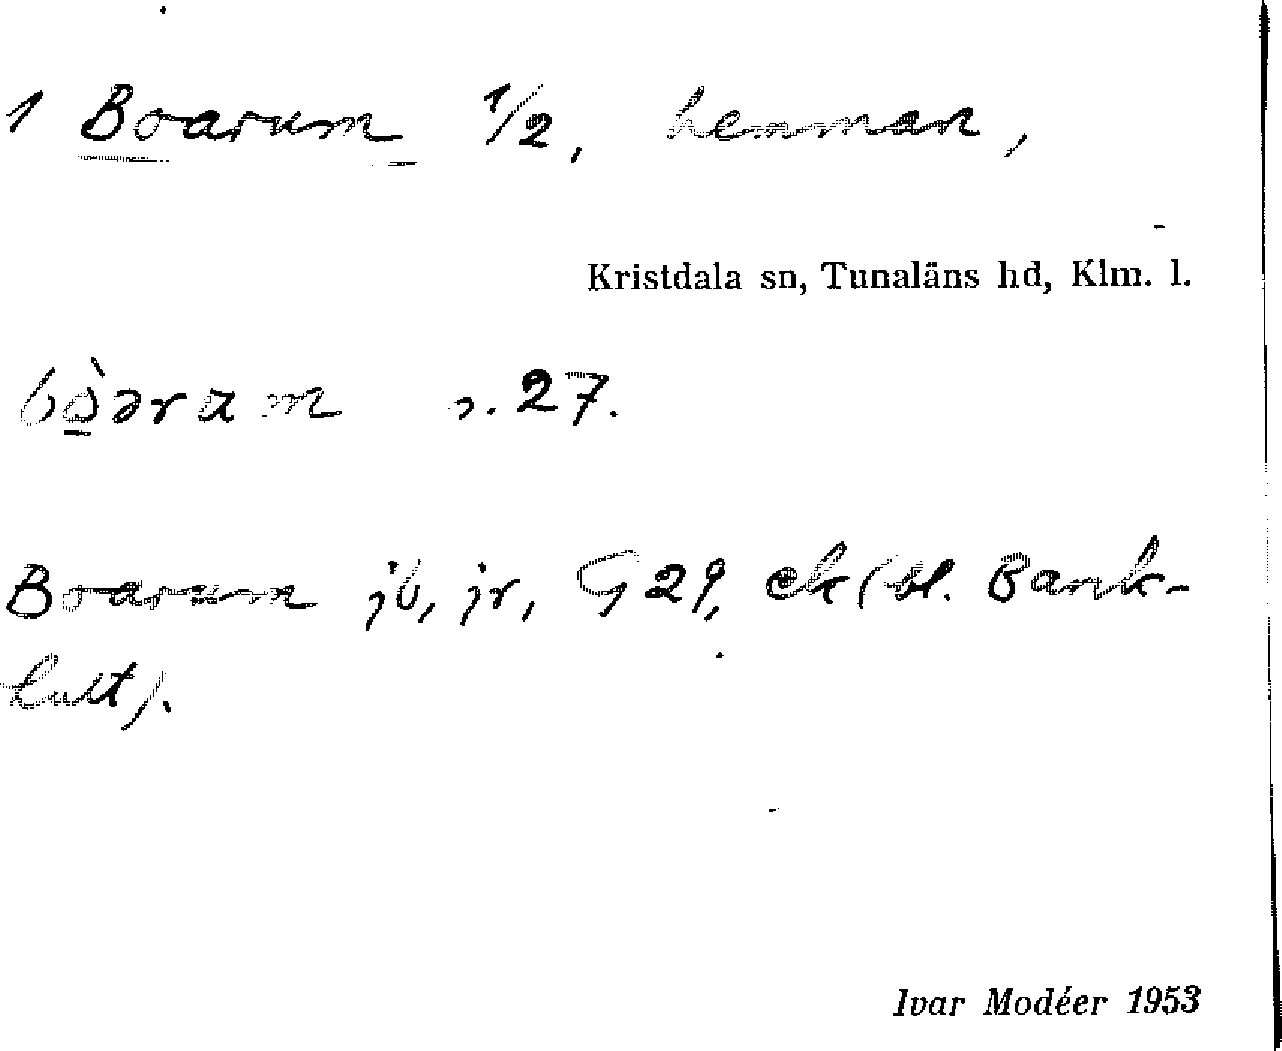 1 Boarum 1/2, hemman,
Kristdala sn, Tunaläns hd, Klm. l.
bò̠ərum s. 27.
Boarum jb, jr, G 29, ek (bl. Bank-
hult).
Ivar Modéer 1953